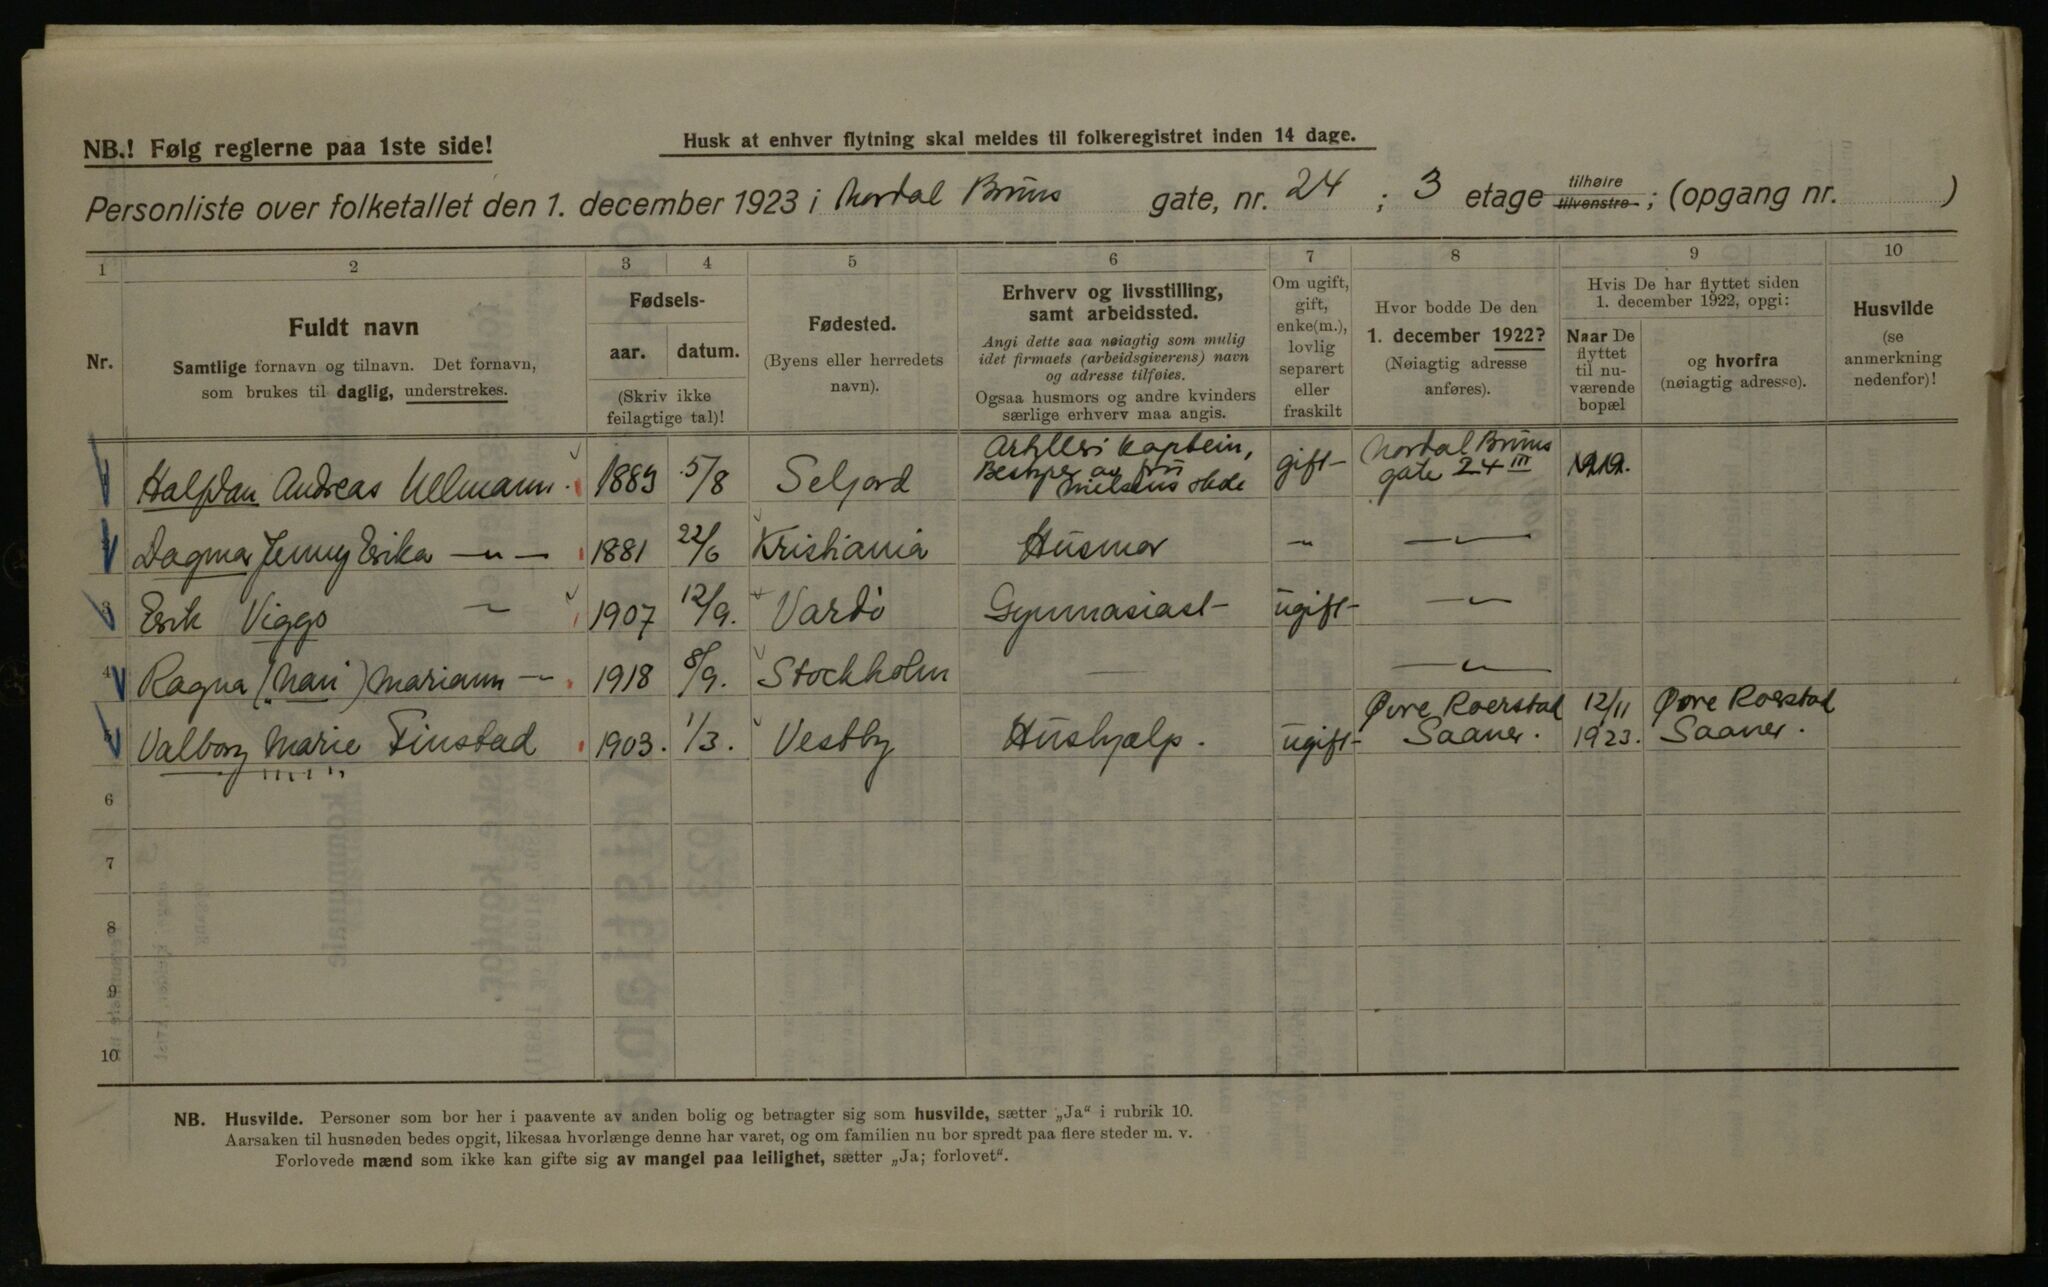 NB.! Følg reglerne paa 1ste side!
Husk at enhver flytning skal meldes til folkeregistret inden 14 dage.
Personliste over folketallet den 1. december 1923 i Nordal Bruns gate, nr. 24 ; 3 etage tilhøire tilvenstre ; (opgang nr. )
1 2 3 4 5 6 7 8 9 10
Nr.
Fuldt navn
Samtlige fornavn og tilnavn. Det fornavn,
som brukes til daglig, understrekes.
Fødsels-
aar. datum.
(Skriv ikke
feilagtige tal)!
Fødested.
(Byens eller herredets
navn).
Erhverv og livsstilling,
samt arbeidssted.
Angi dette saa nøiagtig som mulig
idet firmaets (arbeidsgiverens) navn
og adresse tilføies.
Ogsaa husmors og andre kvinders
særlige erhverv maa angis.
Om ugift,
gift,
enke(m.),
lovlig
separert
eller
fraskilt
Hvor bodde De den
1. december 1922?
(Nøiagtig adresse
anføres).
Hvis De har flyttet siden
1. december 1922, opgi:
Naar De
flyttet
til nu-
værende
bopæl
og hvorfra
(nøiagtig adresse).
Husvilde
(se
anmerkning
nedenfor)!
Halfdan Andreas Ullmann 1883 5/8 Seljord Artilleri kaptein, Bestyrer av frii Nielsens skole gift Nordal Bruns gate 24 III 1919.
Dagmar Jenny Erika —"— 1881 22/6 Kristiania Husmor —"— —"—
3 Erik Viggo —"— 1907 12/9. Vardö Gymnasiast ugift —"—
4 Ragna (Nan) Mariann —"— 1918 8/9. Stockholm — —"—
Valborg Marie Finstad 1903. 1/3. Vestby Hushjælp. ugift Øvre Roerstad Saaner. 12/11 1923. Øvre Roerstad Saaner.
6
7
8
9
10
NB. Husvilde. Personer som bor her i paavente av anden bolig og betragter sig som husvilde, sætter „Ja“ i rubrik 10.
Aarsaken til husnøden bedes opgit, likesaa hvorlænge denne har varet, og om familien nu bor spredt paa flere steder m. v.
Forlovede mænd som ikke kan gifte sig av mangel paa leilighet, sætter „Ja; forlovet“.